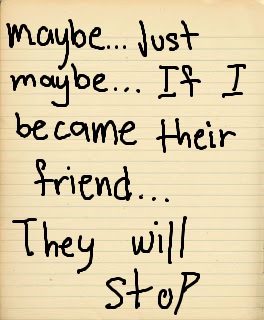 maybe... Just
maybe... If I
became their
friend...
They will
stop